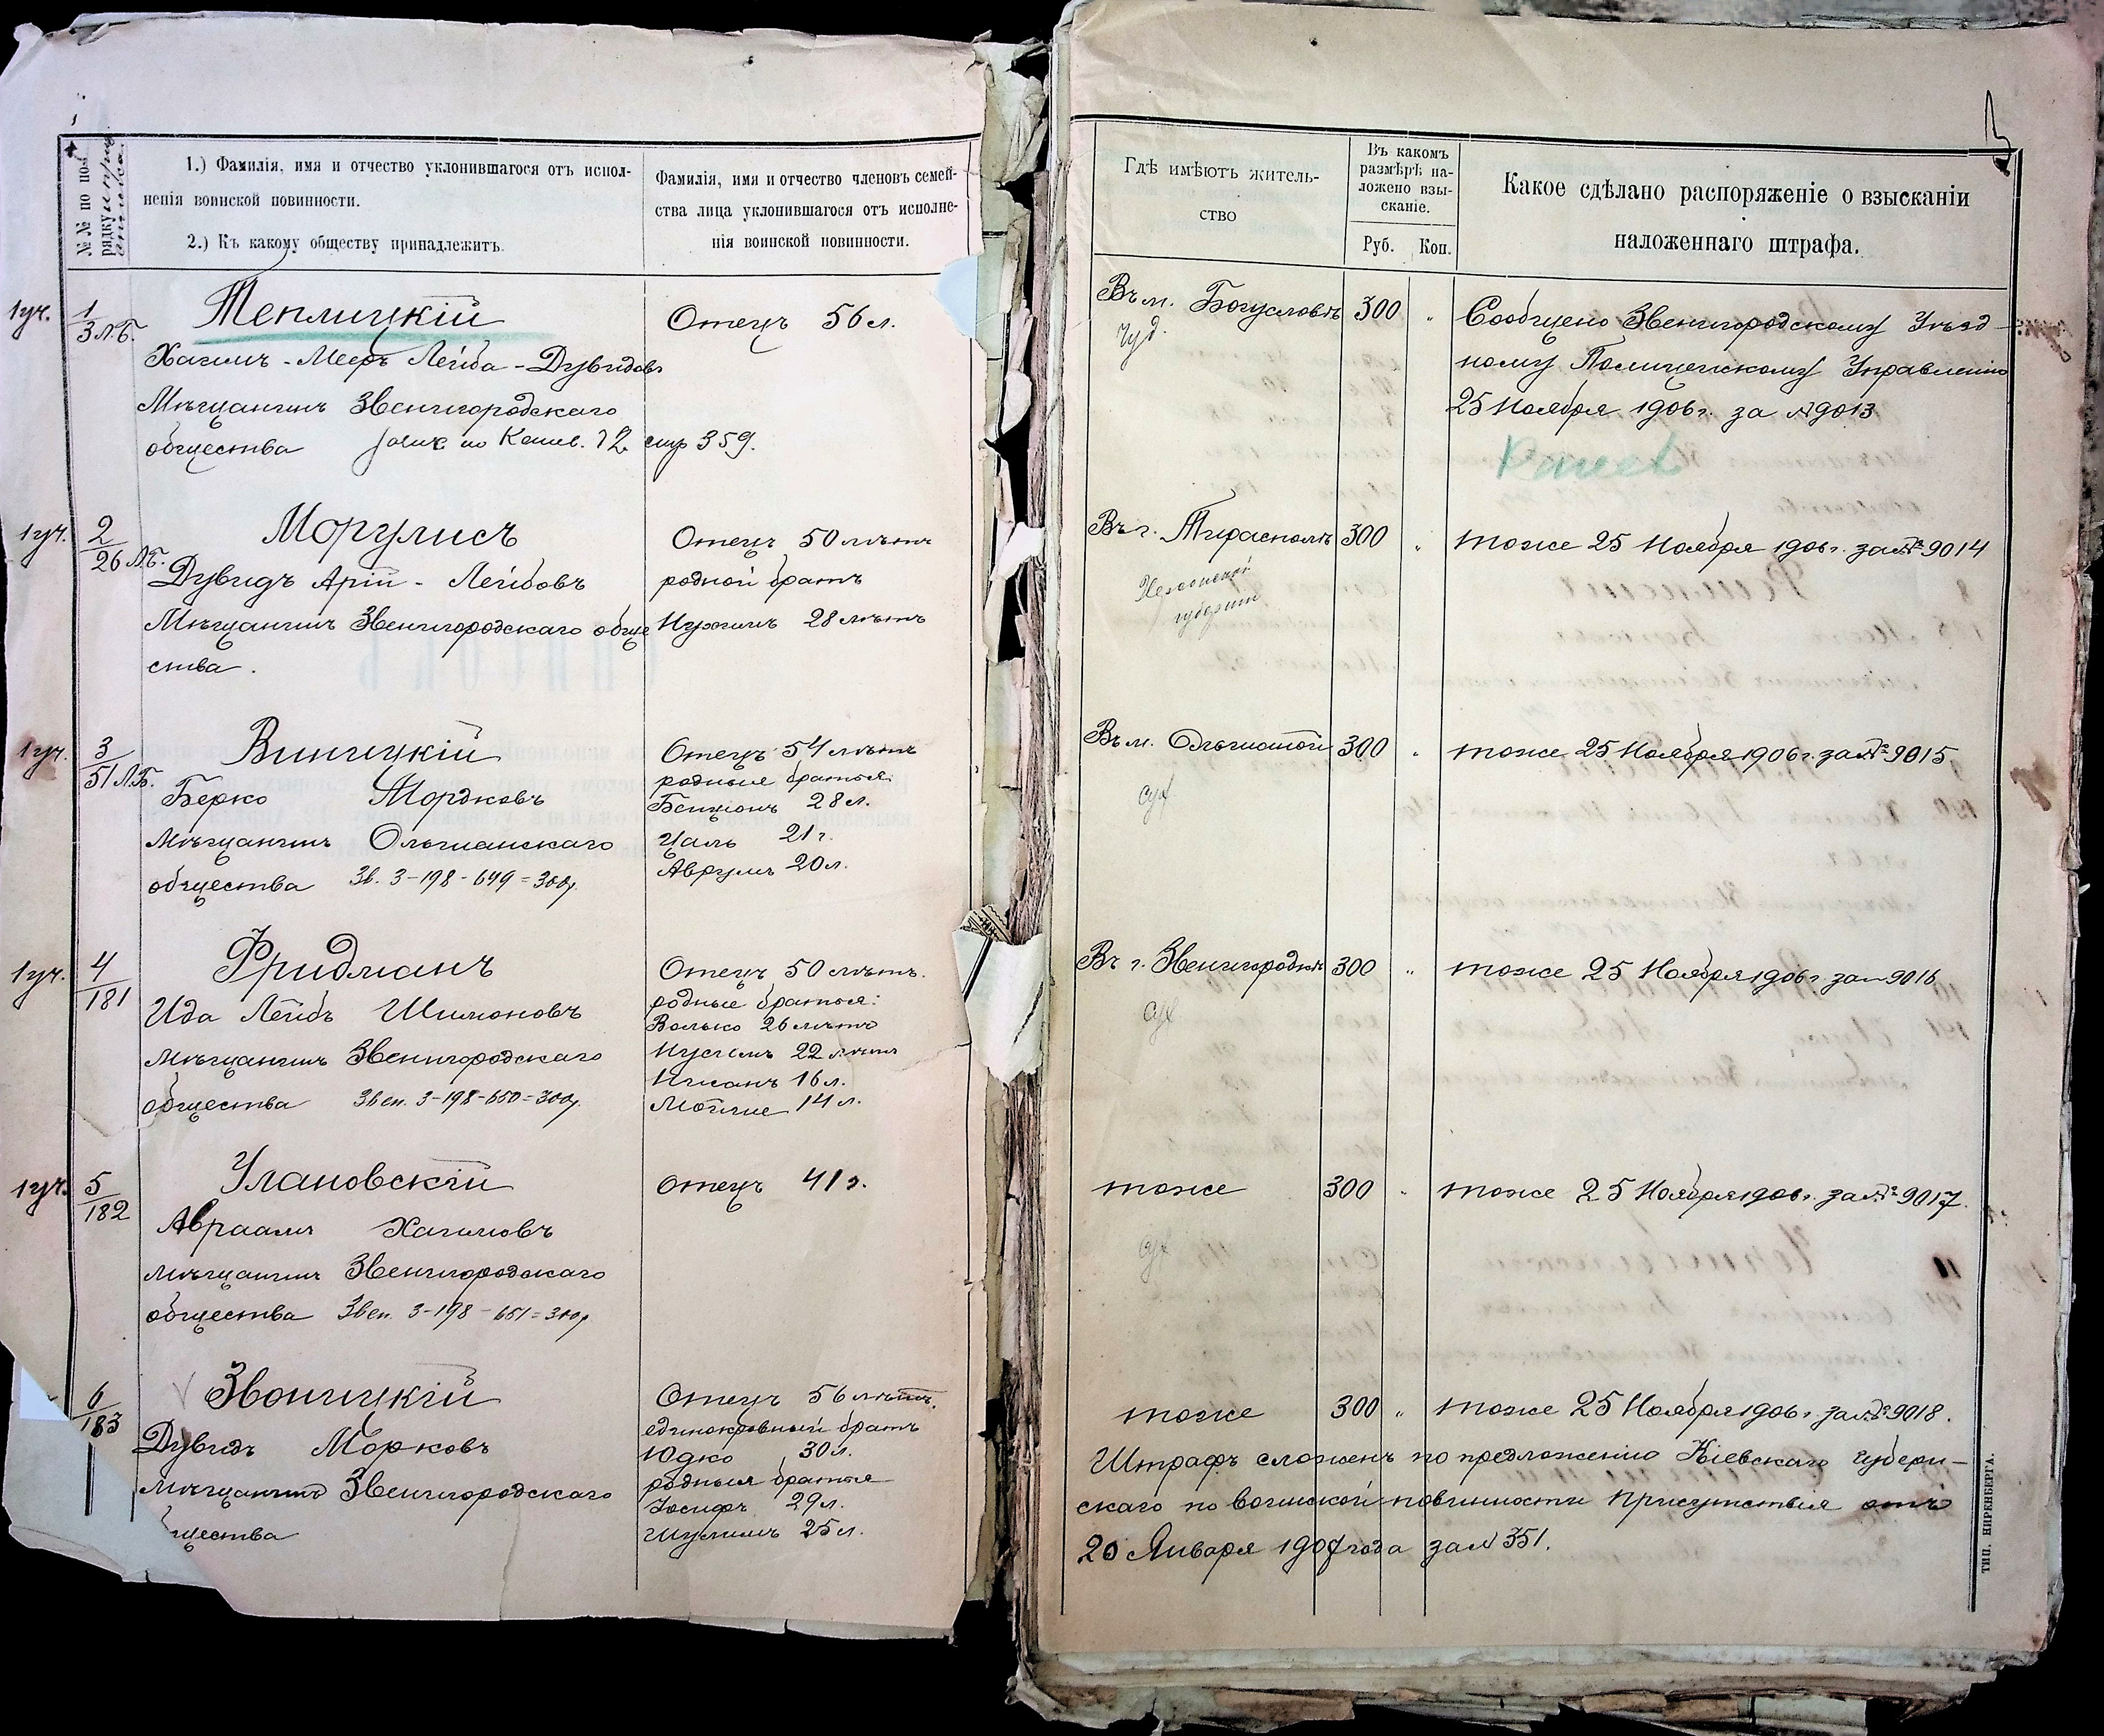 № № по поп
рядку
1.) Фамилія, имя и отчество уклонившагося отъ испол-
ненія воинской повинности.
2.) Къ какому обществу принадлежитъ.
Фамилія, имя и отчество членовъ семей-
ства лица уклонившагося отъ исполне-
нія воинской повинности.
1 уч.
1
3 Л.Б.
Теплицкій
Хаимъ-Мееръ Лейба-Дувидовъ
Мѣщанинъ Звенигородскаго
общества
стр 359.
Отецъ 56 л.
1 уч.
2
26 Л.Б.
Моргулисъ
Дувидъ Арій-Лейбовъ
Мѣщанинъ Звенигородскаго обще
ства.
Отецъ 50 лѣтъ
родной братъ
Нухимъ 28 лѣтъ
1 уч.
3
51 Л.Б.
Винницкій
Берко Мордковъ
мѣщанинъ Ольшанскаго
общества Зв. 3-198-649=300р.
Отецъ 54 лѣтъ
родныя братья:
Бенціонъ 28 л.
Цаль 21 г.
Аврумъ 20 л.
1 уч.
4
181
Фридманъ
Ида Лейбъ Шимоновъ
мѣщанинъ Звенигородскаго
общества Звен. 3-198-650=300р.
Отецъ 50 лѣтъ.
родные братья:
Волько 26 лѣтъ
Нусимъ 22 лѣтъ
Нисанъ 16 л.
Мойше 14 л.
1 уч.
5
182
Улановскій
Авраамъ Хаимовъ
мѣщанинъ Звенигородскаго
общества Звен. 3-198-651=300р
отецъ 41 г.
6
183
Звоницкій
Дувидъ Морковъ
мѣщанинъ Звенигородскаго
щества
Отецъ 56 лѣтъ.
единокровный братъ
Юдко 30 л.
родныя братья
Іосифъ 29 л.
Шулимъ 25 л.
Гдѣ имѣютъ житель-
ство
Въ какомъ
размѣрѣ на-
ложено взы-
сканіе.
Руб. Коп.
Какое сдѣлано распоряженіе о взысканіи
наложеннаго штрафа.
Въ м. Богуславѣ 300 „ Сообщено Звенигородскому Уѣзд-
ному Полицейскому Управленію
25 Ноября 1906 г. за №9013
Въ г. Тирасполѣ 300 „ тоже 25 Ноября 1906 г. за № 9014
Херсонской
губерніи
Въ м. Ольшаной 300 „ тоже 25 Ноября 1906 г. за № 9015
Въ г. Звенигородкѣ 300 „ тоже 25 Ноября 1906 г за № 9016
тоже 300 „ тоже 25 Ноября 1906 г. за № 9017.
тоже 300 „ тоже 25 Ноября 1906 г. за № 9018.
Штрафъ сложенъ по предложенію Кіевскаго Губерн-
скаго по воинской повинности Присутствія отъ
20 Января 1907 года за № 351.
ТИП. НИРЕНБЕРГА.